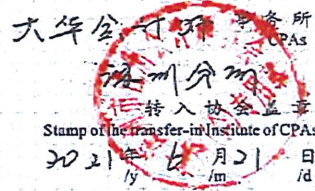 大华会计师事务所
CPAs
深圳分所
转入协会盖章
Stamp of the transfer-in Institute of CPAs
2021年 6月21日
/y /m /d